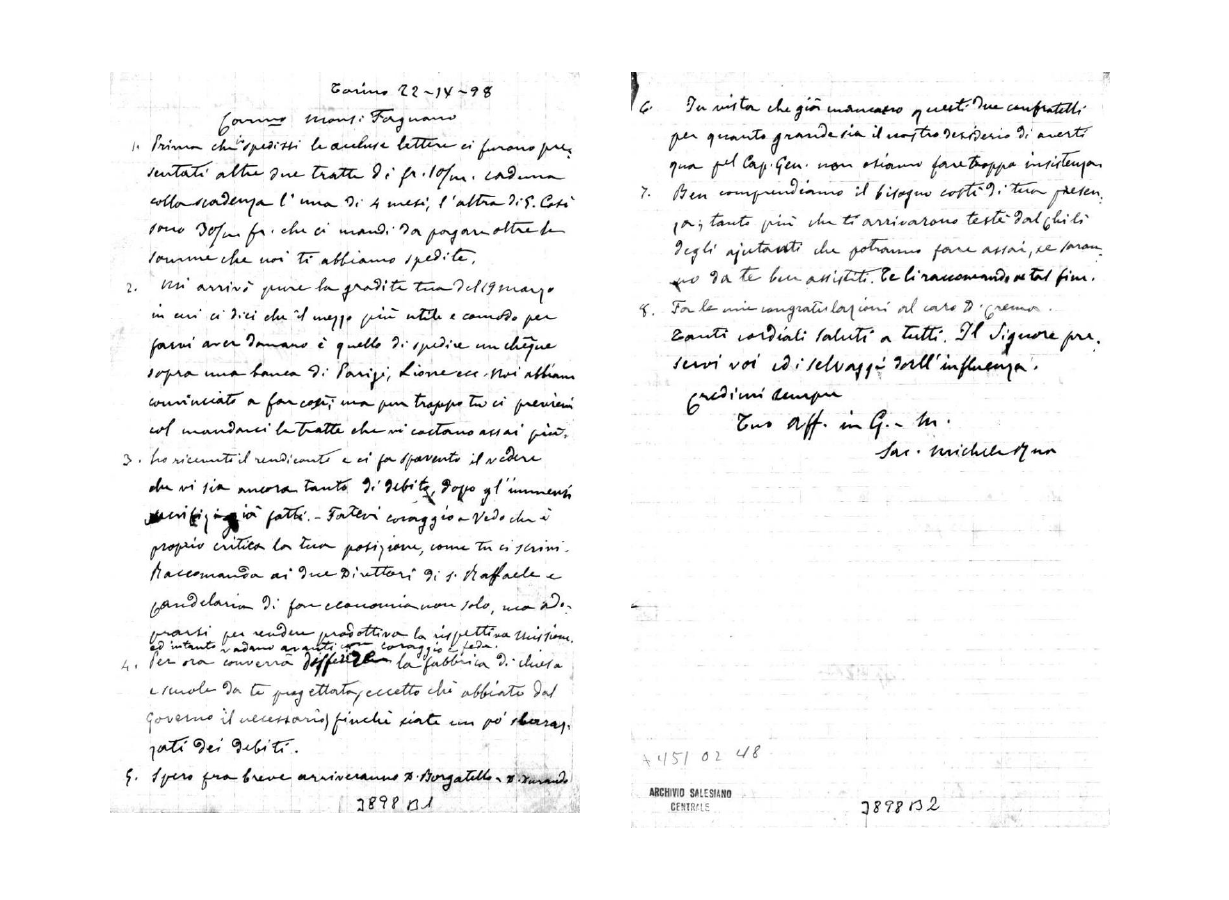 Torino 22-IV-98
Car.mo Mons: Fagnano
1. Prima ch'spedissi le accluse lettere ci furono pre-
sentati altre due tratte di fr. 10/m. caduna
colla scadenza l'una di 4 mesi, l'altra di 5. Così
sono 30/m fr. che ci mandi da pagare oltre le
somme che noi ti abbiamo spedite.
2. Mi arrivò pure la gradita tua del 19 marzo
in cui ci dici che il mezzo più utile e comodo per
farvi aver danaro è quello di spedire un chèque
sopra una banca di Parigi, Lione ecc. Noi abbiam
cominciato a far così; ma pur troppo tu ci previeni
col mandarci le tratte che vi costano assai più.
3. Ho ricevuto il rendiconto e ci fa spavento il vedere
che vi sia ancora tanto di debito, dopo gl'immensi
sacrifizi già fatti. - Fatevi coraggio. Vedo che è
proprio critica la tua posizione, come tu ci scrivi.
Raccomanda ai due Direttori di S. Raffaele e
Candelaria di far economia non solo, ma ado-
prarsi per rendere produttiva la rispettiva Missione,
ed intanto vadano avanti con coraggio e fede.
4. Per ora converrà differire la fabbrica di chiesa
e scuole da te progettata, eccetto che abbiate dal
Governo il necessario, finchè siate un pò sbaraz-
zati dei debiti.
5. Spero fra breve arriveranno D. Borgatello e D. Durando
J898B1
6. In vista che già mancano questi due confratelli
per quanto grande sia il nostro desiderio di averti
qua pel Cap. Gen. non osiamo fare troppa insistenza.
7. Ben comprendiamo il bisogno costì di tua presen-
za; tanto più che ti arrivarono testè dal Chilì
degli ajutanti che potranno fare assai, se saran-
no da te ben assistiti. Te li raccomando a tal fine.
8. Fa le mie congratulazioni al caro D. Crema.
Tanti cordiali saluti a tutti. Il Signore pre-
servi voi ed i selvaggi dall'influenza.
Credimi sempre
Tuo aff. in G. - M.
Sac. Michele Rua
A 451 02 48
ARCHIVIO SALESIANO
CENTRALE
J898B2